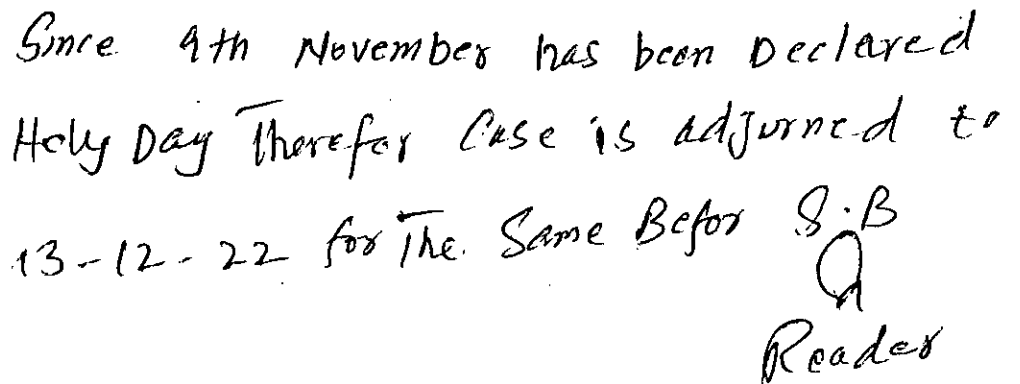 Since 9th November has been Declared
Holy Day Therefor Case is adjurned to
13-12-22 for The. Same Befor S.B
Reader